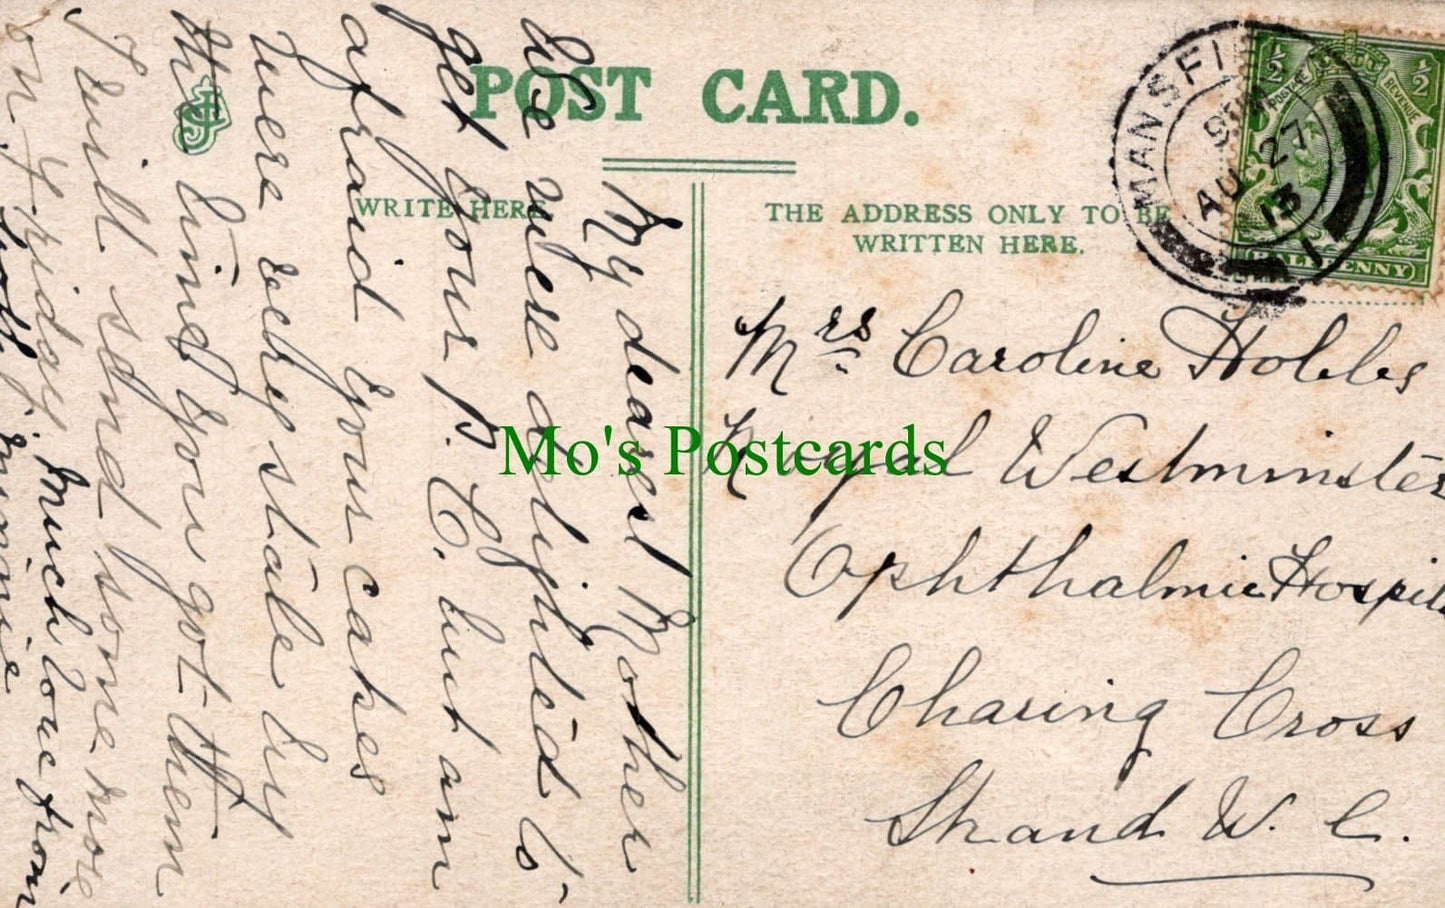 POST CARD.
WRITE HERE
THE ADDRESS ONLY TO BE
WRITTEN HERE.
MANSFI
AU 27
13
1/2
1/2
POSTAGE
REVENUE
HALFPENNY
Mrs Caroline Hobbs
Royal Westminster
Ophthalmic Hospit
Charing Cross
Strand W. C.
My dearest Mother
We were delighted to
get your p. C. but am
afraid your cakes
were very stale by
the time you got them
I will send some more
on Friday.
much love from
Mo's Postcards